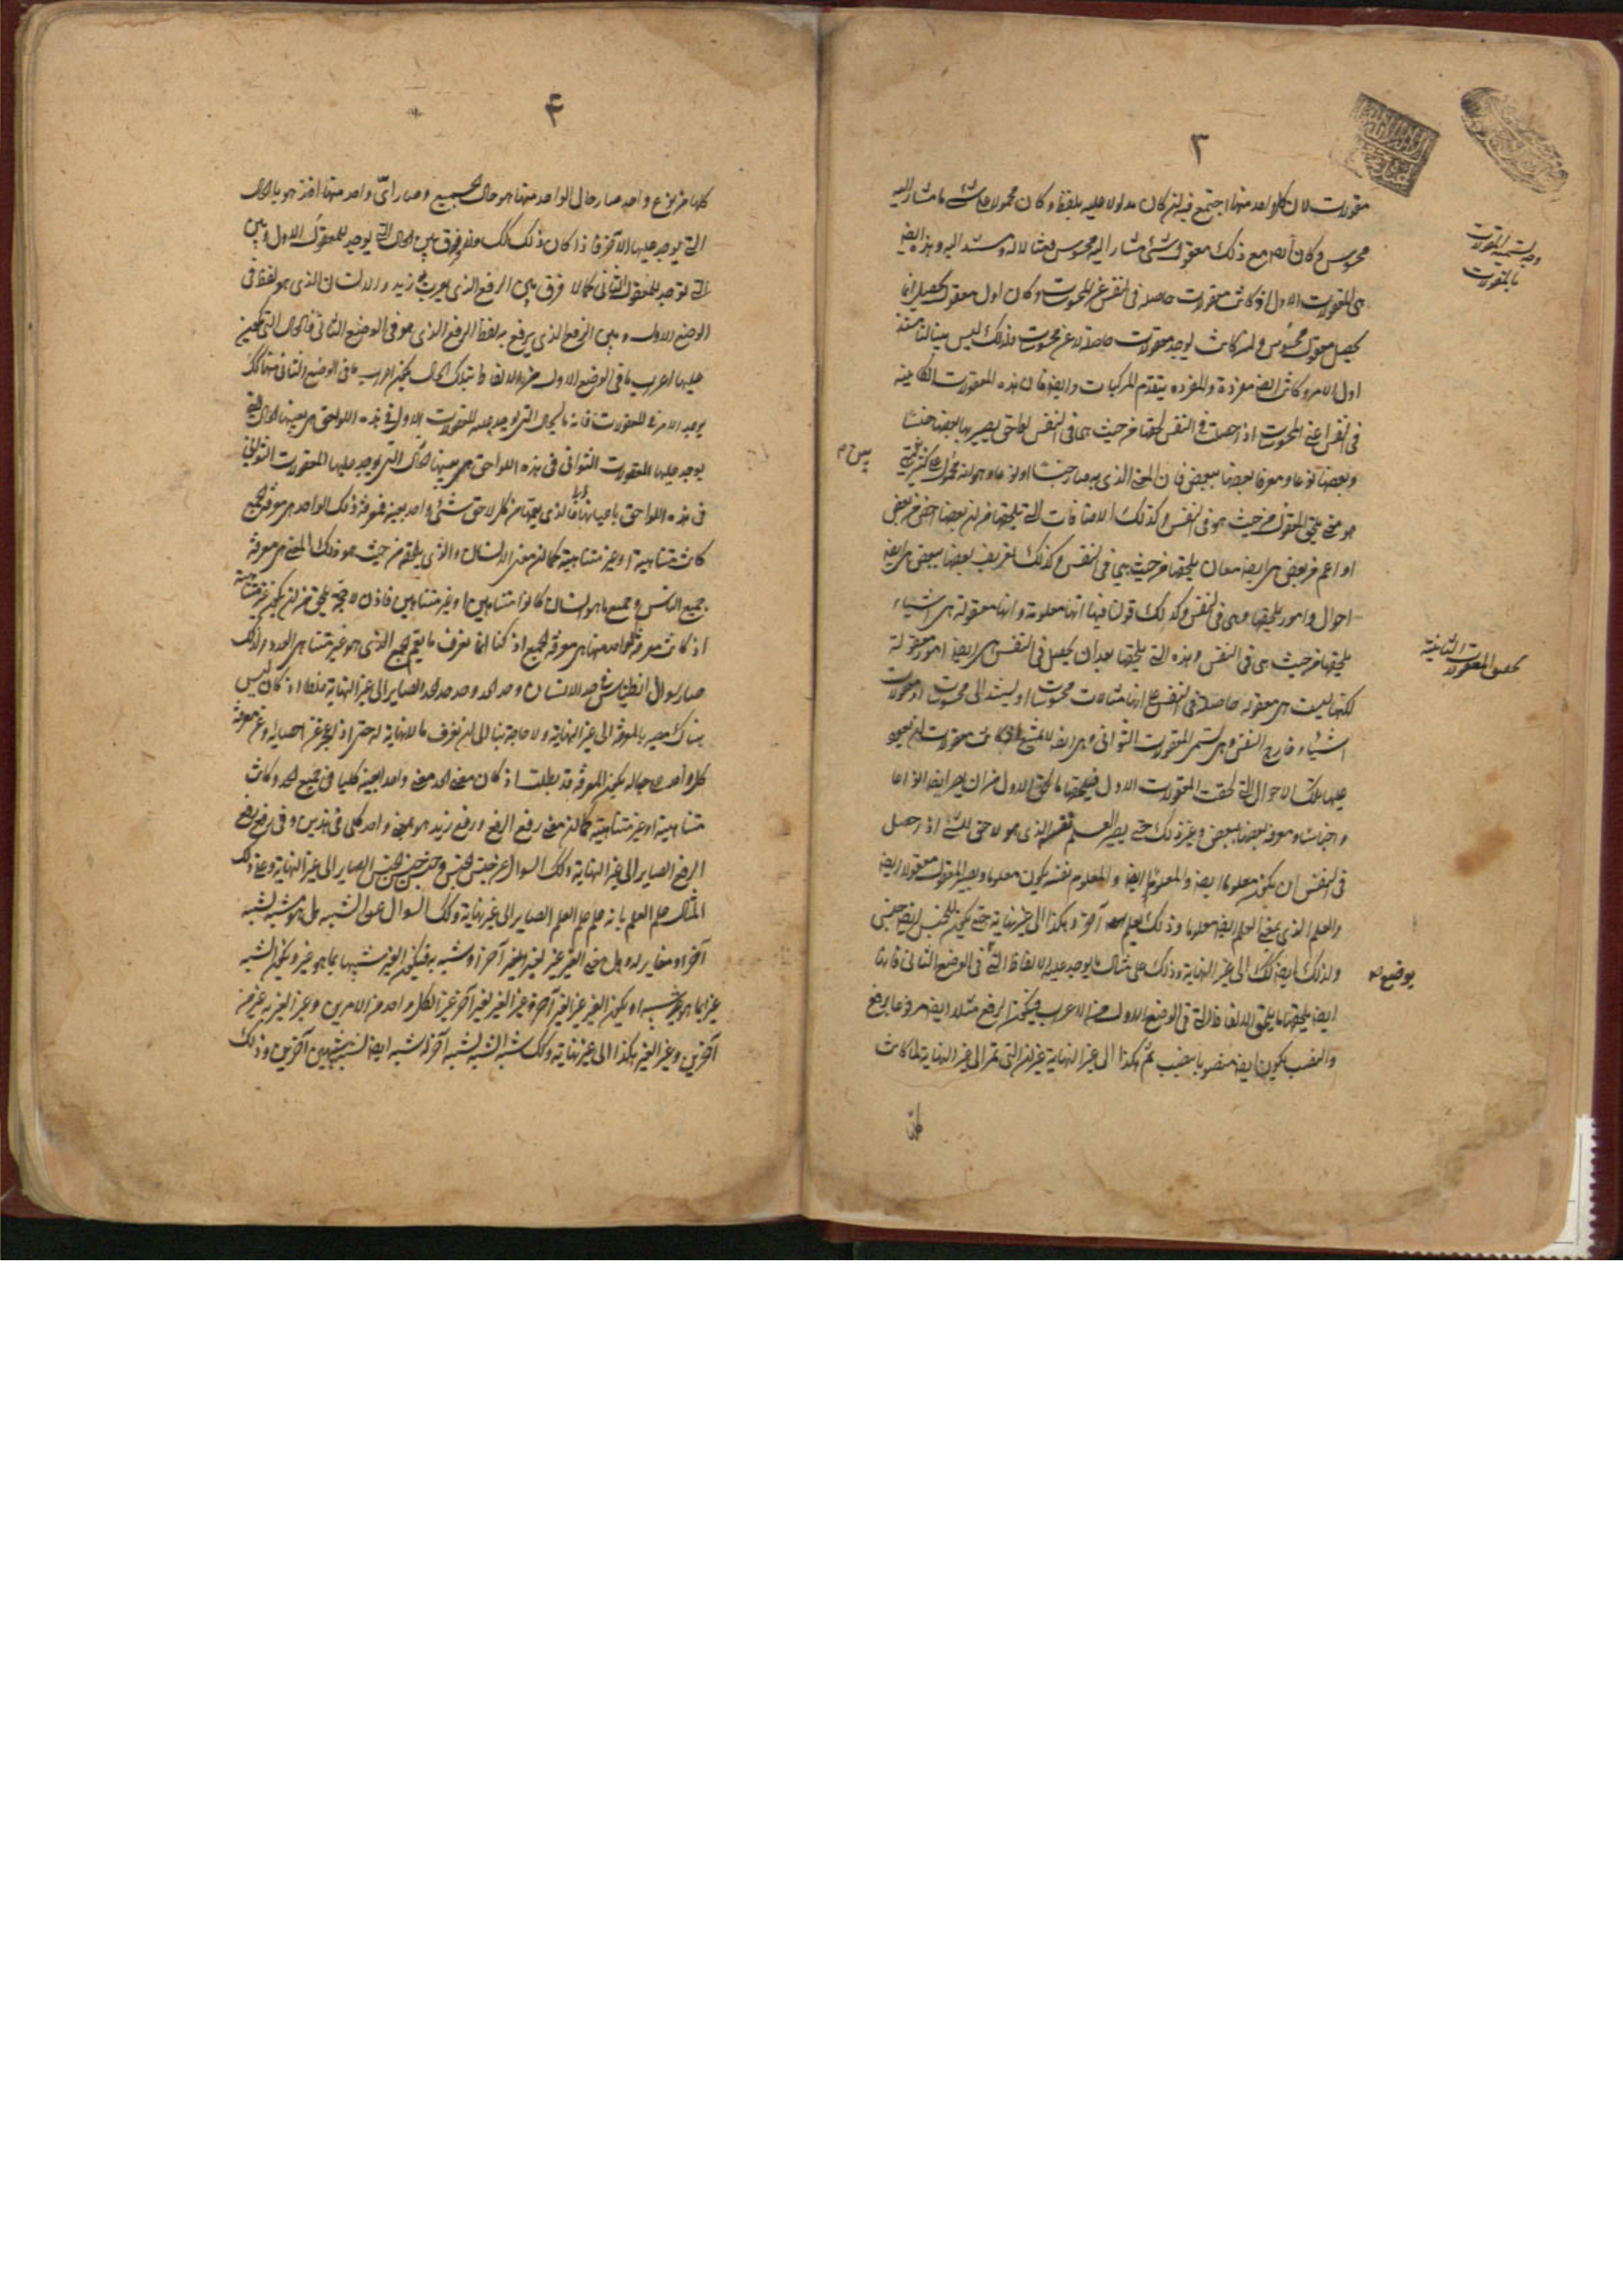 ٣
مقولات لان كل واحد منها اجتمع فيه ان كان مدلولا عليه بلفظ وكان محمولا على شئ ما مشار اليه
محسوس وكان اول معقول شئ مشار اليه محسوس
هى المعقولات الاول اذ كانت معقولات حاصلة فى النفس عن المحسوسات وكان اول معقول يحصل انما
يحصل معقول محسوس وان كانت توجد معقولات حاصلة لا عن محسوسات فذلك ليس بينا لنا منذ
اول الامر وكانت ايضا مفردة والمفردة يتقدم المركبات وايضا فان هذه المعقولات الكائنة
فى النفس عن المحسوسات اذا حصلت فى النفس لحقها من حيث هى فى النفس لواحق يصير بها بعضها جنسا
وبعضها نوعا ومعرفا بعضها ببعض فان المعنى الذى به صار جنسا او نوعا وهو انه محمول على كثيرين
هو معنى يلحق المعقول من حيث هو فى النفس وكذلك الاضافات التى تلحقها من ان بعضها اخص من بعض
او اعم من بعض هى ايضا معان يلحقها من حيث هى فى النفس وكذلك تعريف بعضها ببعض هى ايضا
احوال وامور يلحقها وهى فى النفس وكذلك قولنا فيها انها معلومة وانها معقولة هى اشياء
يلحقها من حيث هى فى النفس وهذه التى يلحقها بعد ان يحصل فى النفس هى ايضا امور معقولة
لكنها ليست هى معقولة حاصلة فى النفس على انها مثالات محسوسات او يستند الى محسوسات او معقولات
اشياء خارج النفس وهى تسمى المعقولات الثوانى وهى ايضا لا يمتنع اذ كانت معقولات ان تعود
عليها تلك الاحوال التى لحقت المعقولات الاول فيلحقها ما يلحق الاول من ان يصير ايضا انواعا
واجناسا ومعرفة بعضها ببعض وغير ذلك حتى يصير العلم نفسه الذى هو لاحق للشئ اذا حصل
فى النفس ان يكون معلوما ايضا والمعلوم ايضا والمعلوم نفسه يكون معلوما ويصير المعقول معقولا ايضا
والعلم الذى بمعنى العلم ايضا معلوما وذلك بعلم آخر وهكذا الى غير نهاية حتى يكون للجنس ايضا جنس
ولذلك ايضا كك الى غير النهاية وذلك على مثال ما يوجد عليه الالفاظ التى فى الوضع الثانى فانها
ايضا يلحقها ما يلحق الالفاظ التى فى الوضع الاول من الاعراب فيكون الرفع مثلا ايضا مرفوعا برفع
والنصب يكون ايضا منصوبا بنصب ثم هكذا الى غير النهاية غير ان التى تمر الى غير النهاية لما كانت
كلها
وجه تسمية المقولات
بالمقولات
تحقيق المعقولات الثانية
٤
كلها من نوع واحد صار حال الواحد منها هو حال الجميع وصار اى واحد منها اخذ هو بالحال
التى يوجد عليها الآخر فاذا كان ذلك كك فلا فرق بين الحال التى يوجد للمعقول الاول وبين
التى توجد للمعقول الثانى كما لا فرق بين الرفع الذى يعرب به زيد والانسان الذى هو لفظ فى
الوضع الاول وبين الرفع الذى يرفع به لفظ الرفع الذى هو فى الوضع الثانى فالحال التى يكون
عليها اعراب ما فى الوضع الاول من الالفاظ بتلك الحال يكون اعراب ما فى الوضع الثانى منها كك
يوجد الامر فى المعقولات فانه بالحال التى يوجد عليه المعقولات الاول فى هذه اللواحق هى بعينها الحال التى
يوجد عليها المعقولات الثوانى فى هذه اللواحق
فى هذه اللواحق باعيانها فالذى يعمها من كل لاحق شئ واحد بعينه فمعرفة ذلك الواحد هى معرفة الجميع
كانت متناهية او غير متناهية كما ان معنى الانسان والذى يلحقه من حيث هو ذلك المعنى هى معرفة
جميع الناس وجميع ما هو انسان كانوا متناهين او غير متناهين
اذ كانت معرفة الواحد منها هى معرفة الجميع اذ كنا انما نعرف ما يعم الجميع الذى هو غير متناهى العدد ولذلك
صار سوال انطسثانس عن حد الانسان وحد الحد وحد حد الحد الصاير الى غير النهاية اذ كان ليس
هناك مصير بالمعرفة الى غير النهاية ولا حاجة بنا الى ان نعرف ما لا نهاية له حتى اذا عجز عن احصائه وعن معرفة
كل واحد على حياله يكون المعرفة قد بطلت اذ كان معنى الحد معنى واحد بعينه كليا فى جميع الحدود كانت
متناهية او غير متناهية كما ان معنى رفع الرفع ورفع زيد هو معنى واحد كلى فى هذين وفى رفع رفع
الرفع الصاير الى غير النهاية وكك السوال عن جنس الجنس وجنس جنس الجنس الصاير الى غير النهاية وعلى ذلك
المثال علم العلم بانه علم علم العلم الصاير الى غير نهاية وكك السوال عن الشبيه هل هو شبيه لشبيه
آخر او مغاير له وهل معنى الغير غير لغير بغير آخر او شبيه به فيكون الغير شبيها بما هو غير ويكون الشبيه
غيرا بما هو شبيه او يكون الغير غير الغير آخر وغير الغير لغير آخر غير الكل واحد من الامرين وغير الغيريه غير من
آخرين وغير الغير هكذا الى غير نهاية وكك شبه الشبيه لشبيه آخر له شبه ايضا لشبيه شبهين آخرين وذلك